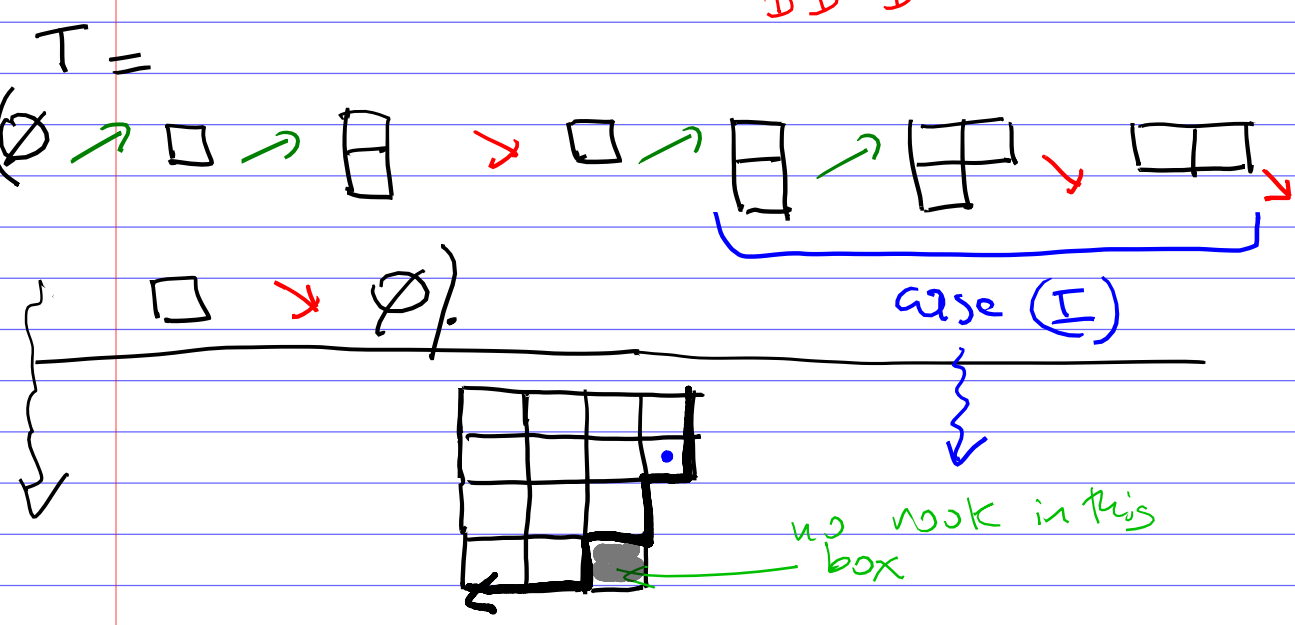 T =
(∅ ↗ □ ↗ ↘ □ ↗ ↗ ↘ ↘
□ ↘ ∅).
case (I)
no rook in this
box